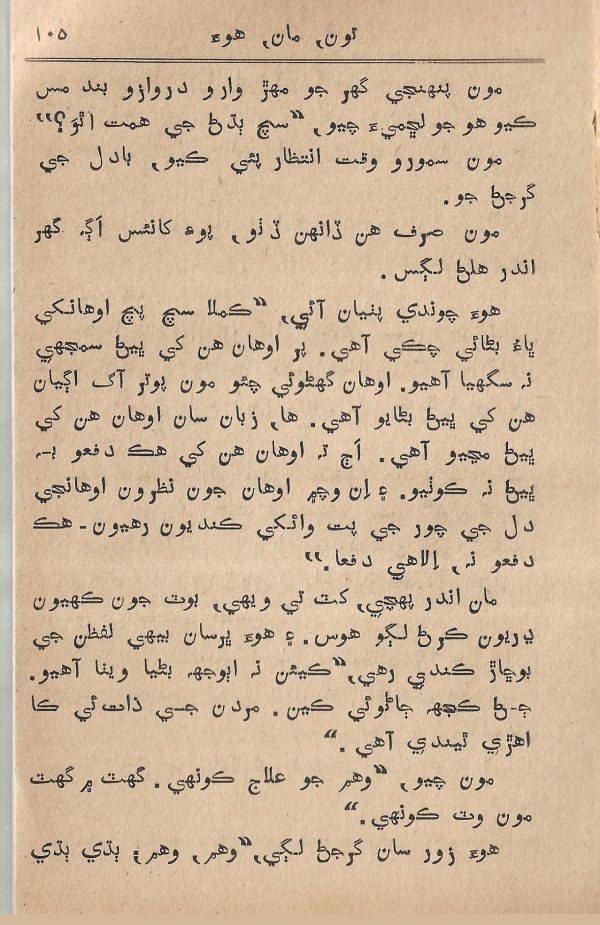 تون, مان, هوءَ ١٠٥
مون پنهنجي گهر جو مهڙ وارو دروازو بند مس
ڪيو هو جو لڇميءَ چيو, “سچ ٻڌڻ جي همت اٿوَ؟”
مون سمورو وقت انتظار پئي ڪيو, بادل جي
گرجڻ جو.
مون صرف هن ڏانهن ڏٺو, پوءِ کانئس اَڳہ گهر
اندر هلڻ لڳس.
هوءَ چوندي پٺيان آئي, “ڪملا سچ پچ اوهانکي
ڀاءُ بڻائي چڪي آهي. پر اوهان هن کي ڀيڻ سمجهي
نہ سگهيا آهيو. اوهان گهڻوئي چئو مون پوٽر آگ اڳيان
هن کي ڀيڻ بڻايو آهي. ها, زبان سان اوهان هن کي
ڀيڻ مڃيو آهي. اَڄ تہ اوهان هن کي هڪ دفعو بہ
ڀيڻ نہ ڪوٺيو. ۽ اِن وچ۾ اوهان جون نظرون اوهانجي
دل جي چور جي پت وائکي ڪنديون رهيون - هڪ
دفعو نہ, اِلاهي دفعا.”
مان اندر پهچي, کٽ تي ويهي, بوٽ جون ڪهيون
ڍريون ڪرڻ لڳو هوس. ۽ هوءَ ڀرسان بيهي لفظن جي
بوڇاڙ ڪندي رهي,“ڪيئن نہ اٻوجهہ بڻيا ويٺا آهيو.
ڄڻ ڪجهہ ڄاڻوئي ڪين. مردن جي ذات ئي ڪا
اهڙي ٿيندي آهي.“
مون چيو, “وهم جو علاج ڪونهي. گهٽ ۾ گهٽ
مون وٽ ڪونهي.“
هوءَ زور سان گرجڻ لڳي,“وهم, وهم; ٻڌي ٻڌي